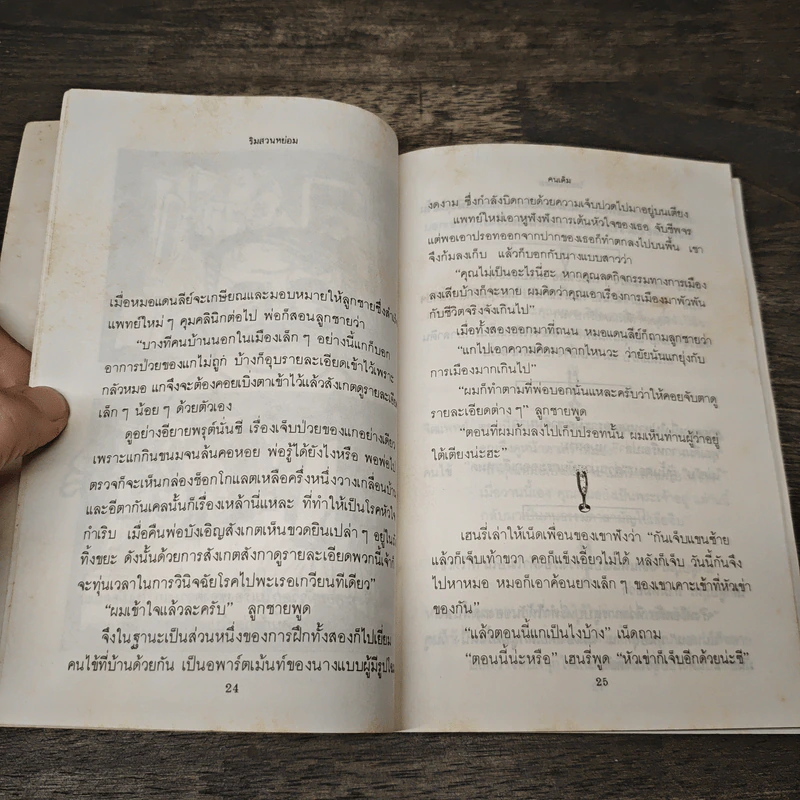 ริมสวนหย่อม
เมื่อหมอแดนลีย์จะเกษียณและมอบหมายให้ลูกชายซึ่งสำเร็จ
แพทย์ใหม่ๆ คุมคลินิกต่อไป พ่อก็สอนลูกชายว่า
“บางทีคนบ้านนอกในเมืองเล็กๆ อย่างนี้แกก็บอก
อาการป่วยของแกไม่ถูก บ้างก็อุบรายละเอียดเข้าไว้เพราะ
กลัวหมอ แกจึงจะต้องคอยเบิ่งตาเข้าไว้แล้วสังเกตดูรายละเอียด
เล็กๆ น้อยๆ ด้วยตัวเอง
ดูอย่างอียายพรุต์นั่นซี เรื่องเจ็บป่วยของแกอย่างเดียว
เพราะแกกินขนมจนล้นคอหอย พ่อรู้ได้ยังไงหรือ พอพ่อไป
ตรวจก็จะเห็นกล่องช็อกโกแลตเหลือครึ่งหนึ่งวางเกลื่อนบ้าน
และอีตากันเคลนั้นก็เรื่องเหล้านี่แหละ ที่ทำให้เป็นโรคหัวใจ
กำเริบ เมื่อคืนพ่อบังเอิญสังเกตเห็นขวดยินเปล่าๆ อยู่ใน
ทิ้งขยะ ดังนั้นด้วยการสังเกตสังกาดูรายละเอียดพวกนี้เจ้าก็
จะทุ่นเวลาในการวินิจฉัยโรคไปพะเรอเกวียนทีเดียว”
“ผมเข้าใจแล้วละครับ” ลูกชายพูด
จึงในฐานะเป็นส่วนหนึ่งของการฝึกทั้งสองก็ไปเยี่ยม
คนไข้ที่บ้านด้วยกัน เป็นอพาร์ตเม้นท์ของนางแบบผู้มีรูปโฉม
24
คนเดิม
งดงาม ซึ่งกำลังบิดกายด้วยความเจ็บปวดไปมาอยู่บนเตียง
แพทย์ใหม่เอาหูฟังฟังการเต้นหัวใจของเธอ จับชีพจร
แต่พอเอาปรอทออกจากปากของเธอก็ทำตกลงไปบนพื้น เขา
จึงก้มลงเก็บ แล้วก็บอกกับนางแบบสาวว่า
“คุณไม่เป็นอะไรนี่ฮะ หากคุณลดกิจกรรมทางการเมือง
ลงเสียบ้างก็จะหาย ผมคิดว่าคุณเอาเรื่องการเมืองมาพัวพัน
กับชีวิตจริงจังเกินไป”
เมื่อทั้งสองออกมาที่ถนน หมอแดนลีย์ก็ถามลูกชายว่า
“แกไปเอาความคิดมาจากไหนวะ ว่ายัยนั่นแกยุ่งกับ
การเมืองมากเกินไป”
“ผมก็ทำตามที่พ่อบอกนั่นแหละครับว่าให้คอยจับตาดู
รายละเอียดต่างๆ” ลูกชายพูด
“ตอนที่ผมก้มลงไปเก็บปรอทนั้น ผมเห็นท่านผู้ว่าอยู่
ใต้เตียงน่ะฮะ”
เฮนรี่เล่าให้เน็ดเพื่อนของเขาฟังว่า “กันเจ็บแขนซ้าย
แล้วก็เจ็บเท้าขวา คอก็แข็งเอี้ยวไม่ได้ หลังก็เจ็บ วันนี้กันจึง
ไปหาหมอ หมอก็เอาค้อนยางเล็กๆ ของเขาเคาะเข้าที่หัวเข่า
ของกัน”
“แล้วตอนนี้แกเป็นไงบ้าง” เน็ดถาม
“ตอนนี้น่ะหรือ” เฮนรี่พูด “หัวเข่าก็เจ็บอีกด้วยน่ะซี”
25